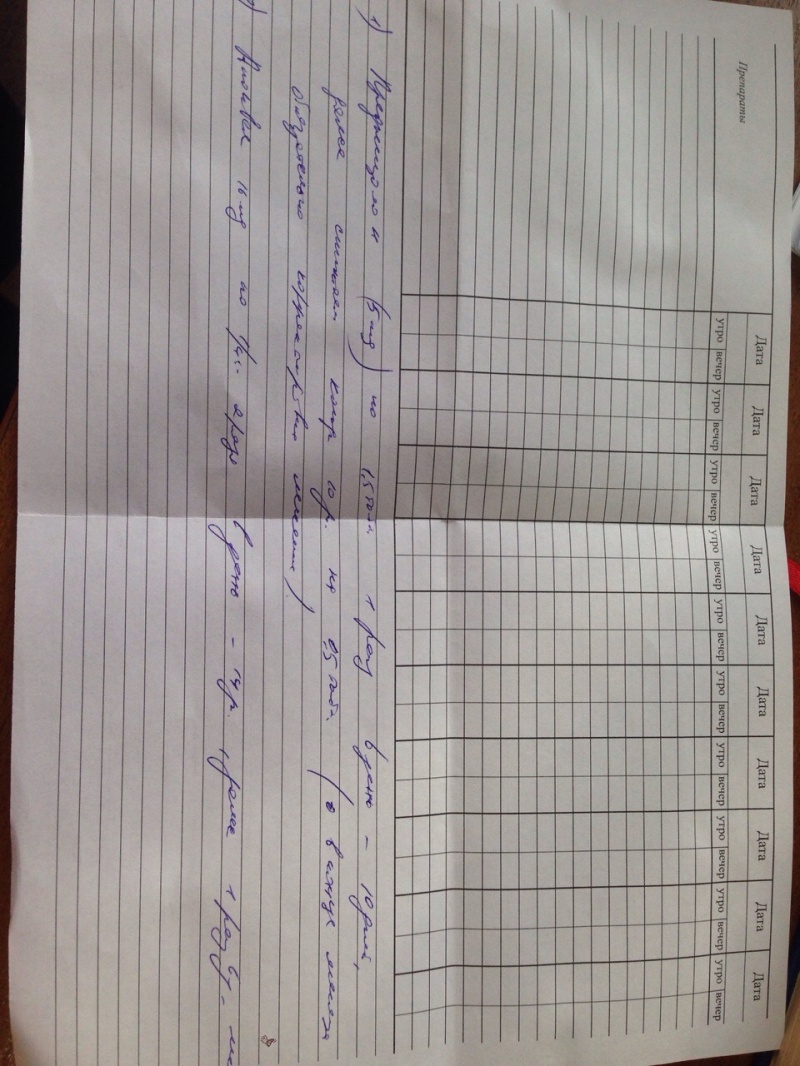 Препараты
Дата Дата Дата Дата Дата Дата Дата Дата Дата Дата
утро вечер утро вечер утро вечер утро вечер утро вечер утро вечер утро вечер утро вечер утро вечер утро вечер
1) Преднизолон (5 мг) по 1,5 табл. 1 раз в день – 10 дней,
далее снижаем кажд 10 р. на 0,5 табл.
обязательно
16 мг по 2 раза в день – 14 р., далее 1 раз